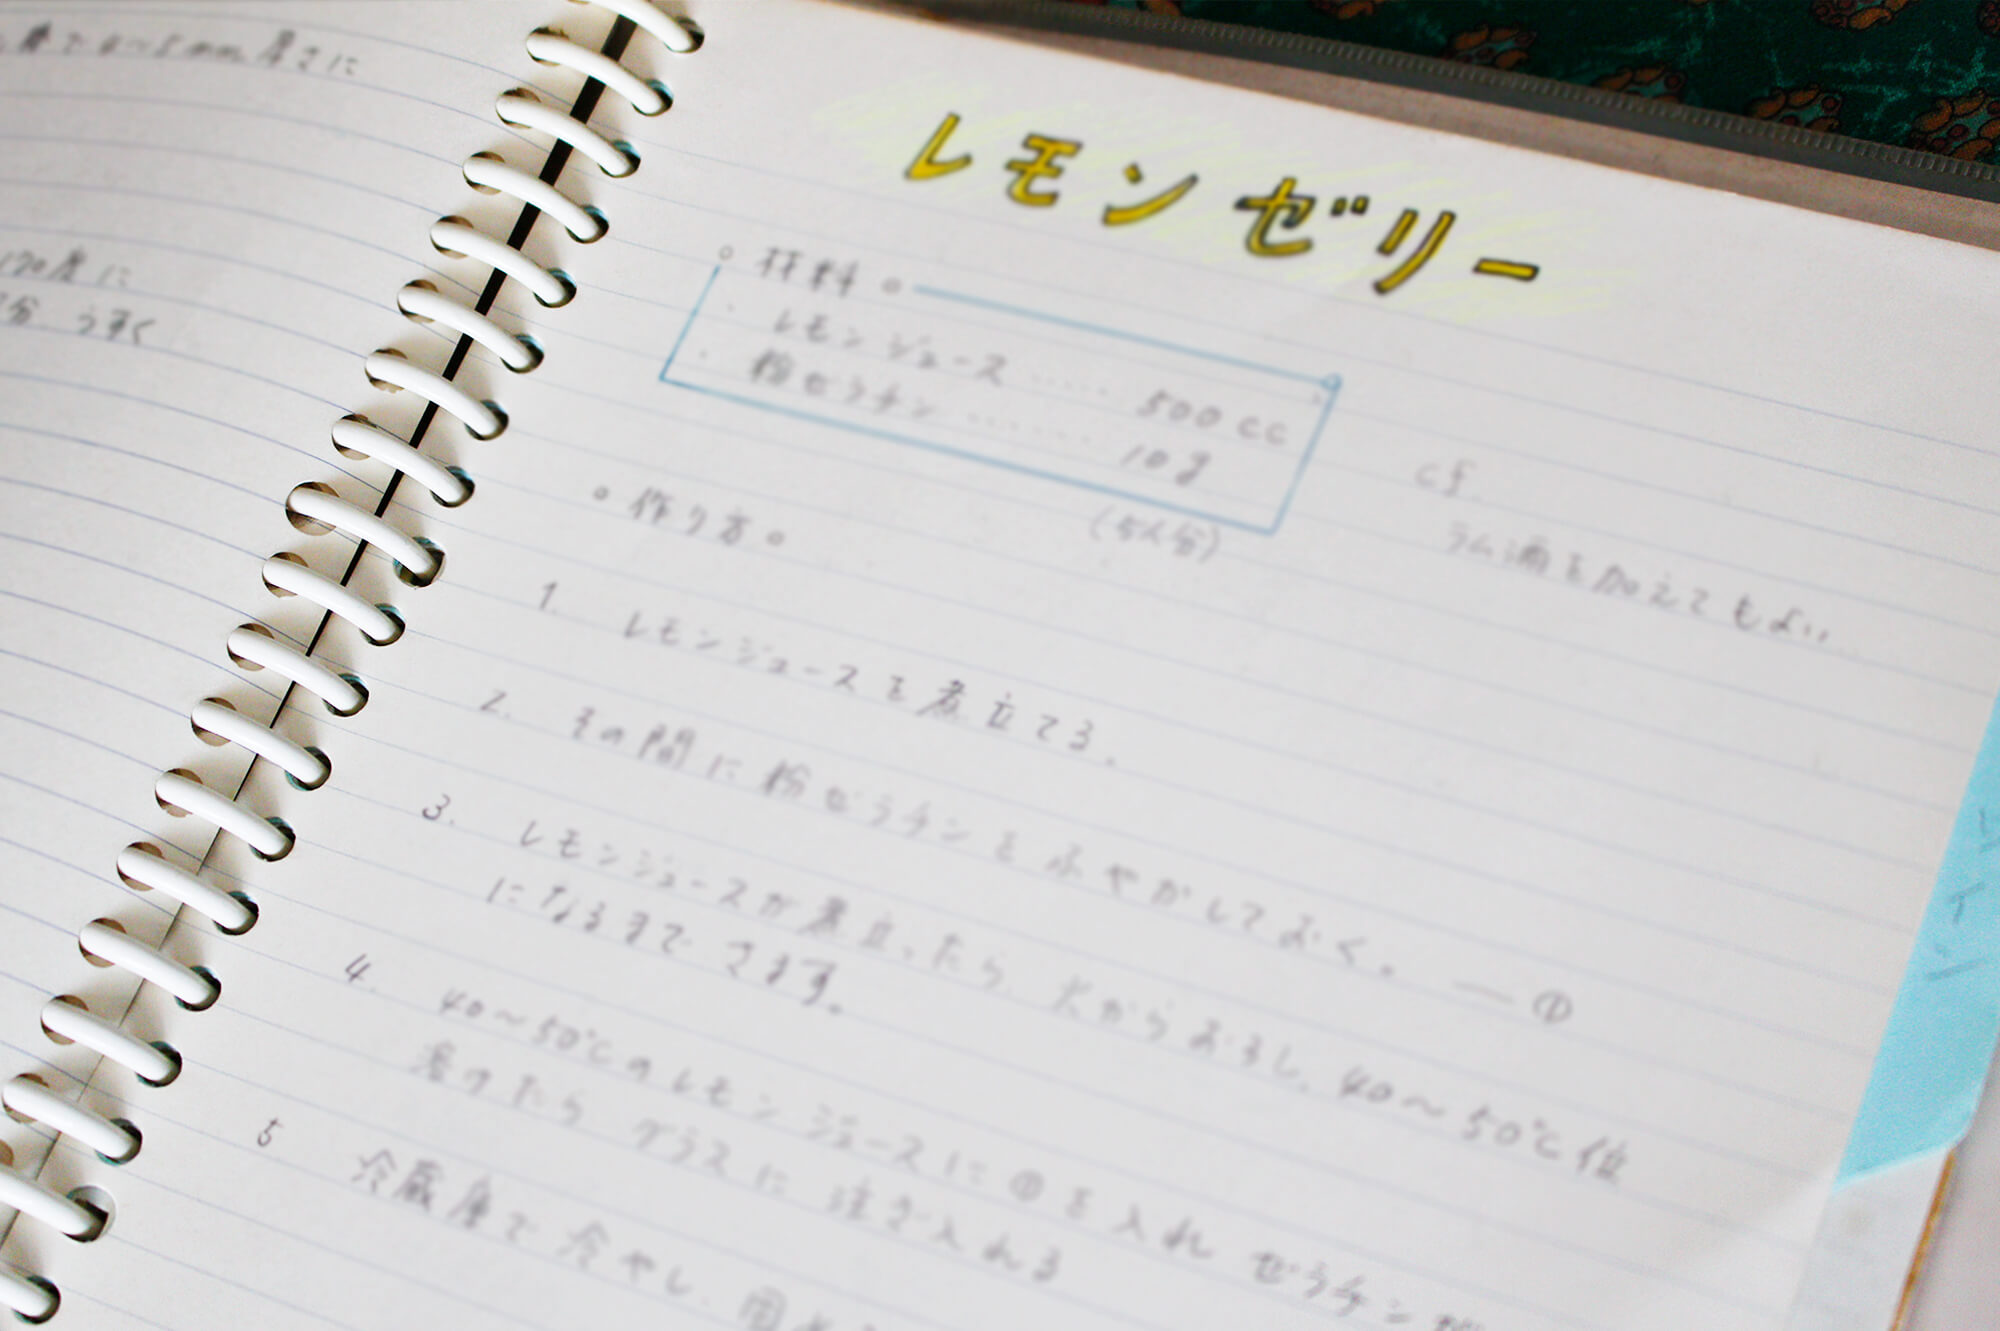 厚さに
170度に
分 うすく
レモンゼリー
○ 材料 ○
・ レモンジュース ‥‥‥ 500cc
・ 粉ゼラチン ‥‥‥‥ 10g
(5人分)
cf.
ラム酒を加えてもよい。
○ 作り方 ○
1. レモンジュースを煮立てる。
2. その間に粉ゼラチンをふやかしておく。 ― ①
3. レモンジュースが煮立ったら、火からおろし、40〜50℃位
になるまでさます。
4. 40〜50℃のレモンジュースに①を入れ ゼラチンが
溶けたら グラスに注ぎ入れる
5 冷蔵庫で冷やし、固